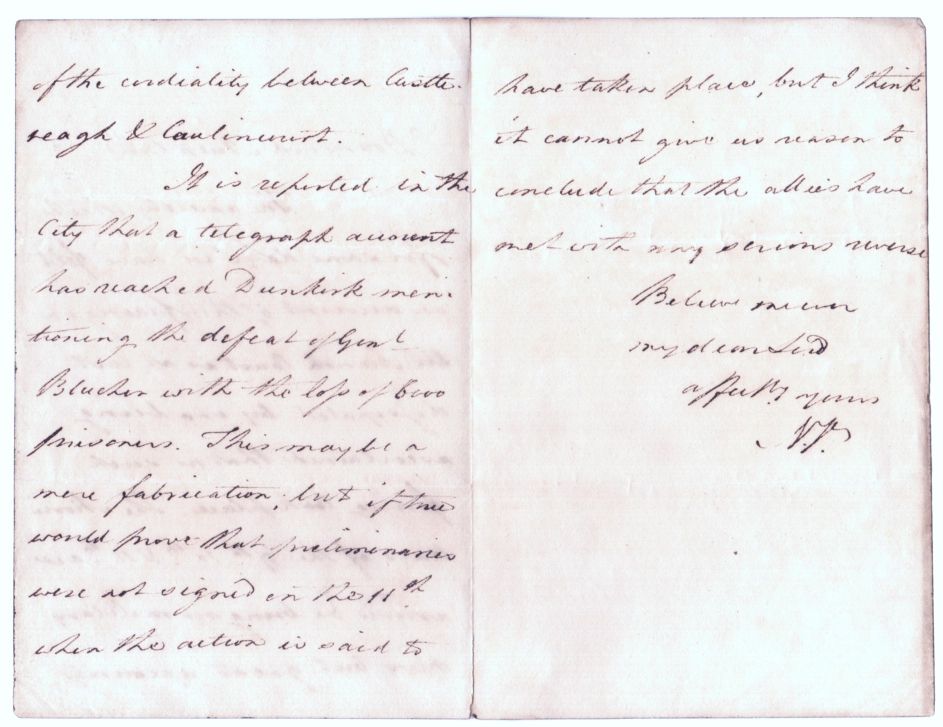 of the cordiality between Castle-
reagh & Caulincourt.
It is reported in the
City that a telegraph account
has reached Dunkirk men-
tioning the defeat of Genl
Blucher with the loss of 6000
prisoners. This may be a
mere fabrication, but if true
would prove that preliminaries
were not signed on the 11th
when the action is said to
have taken place, but I think
it cannot give us reason to
conclude that the allies have
met with any serious reverse
Believe me ever
my dear Lord
affectly yours